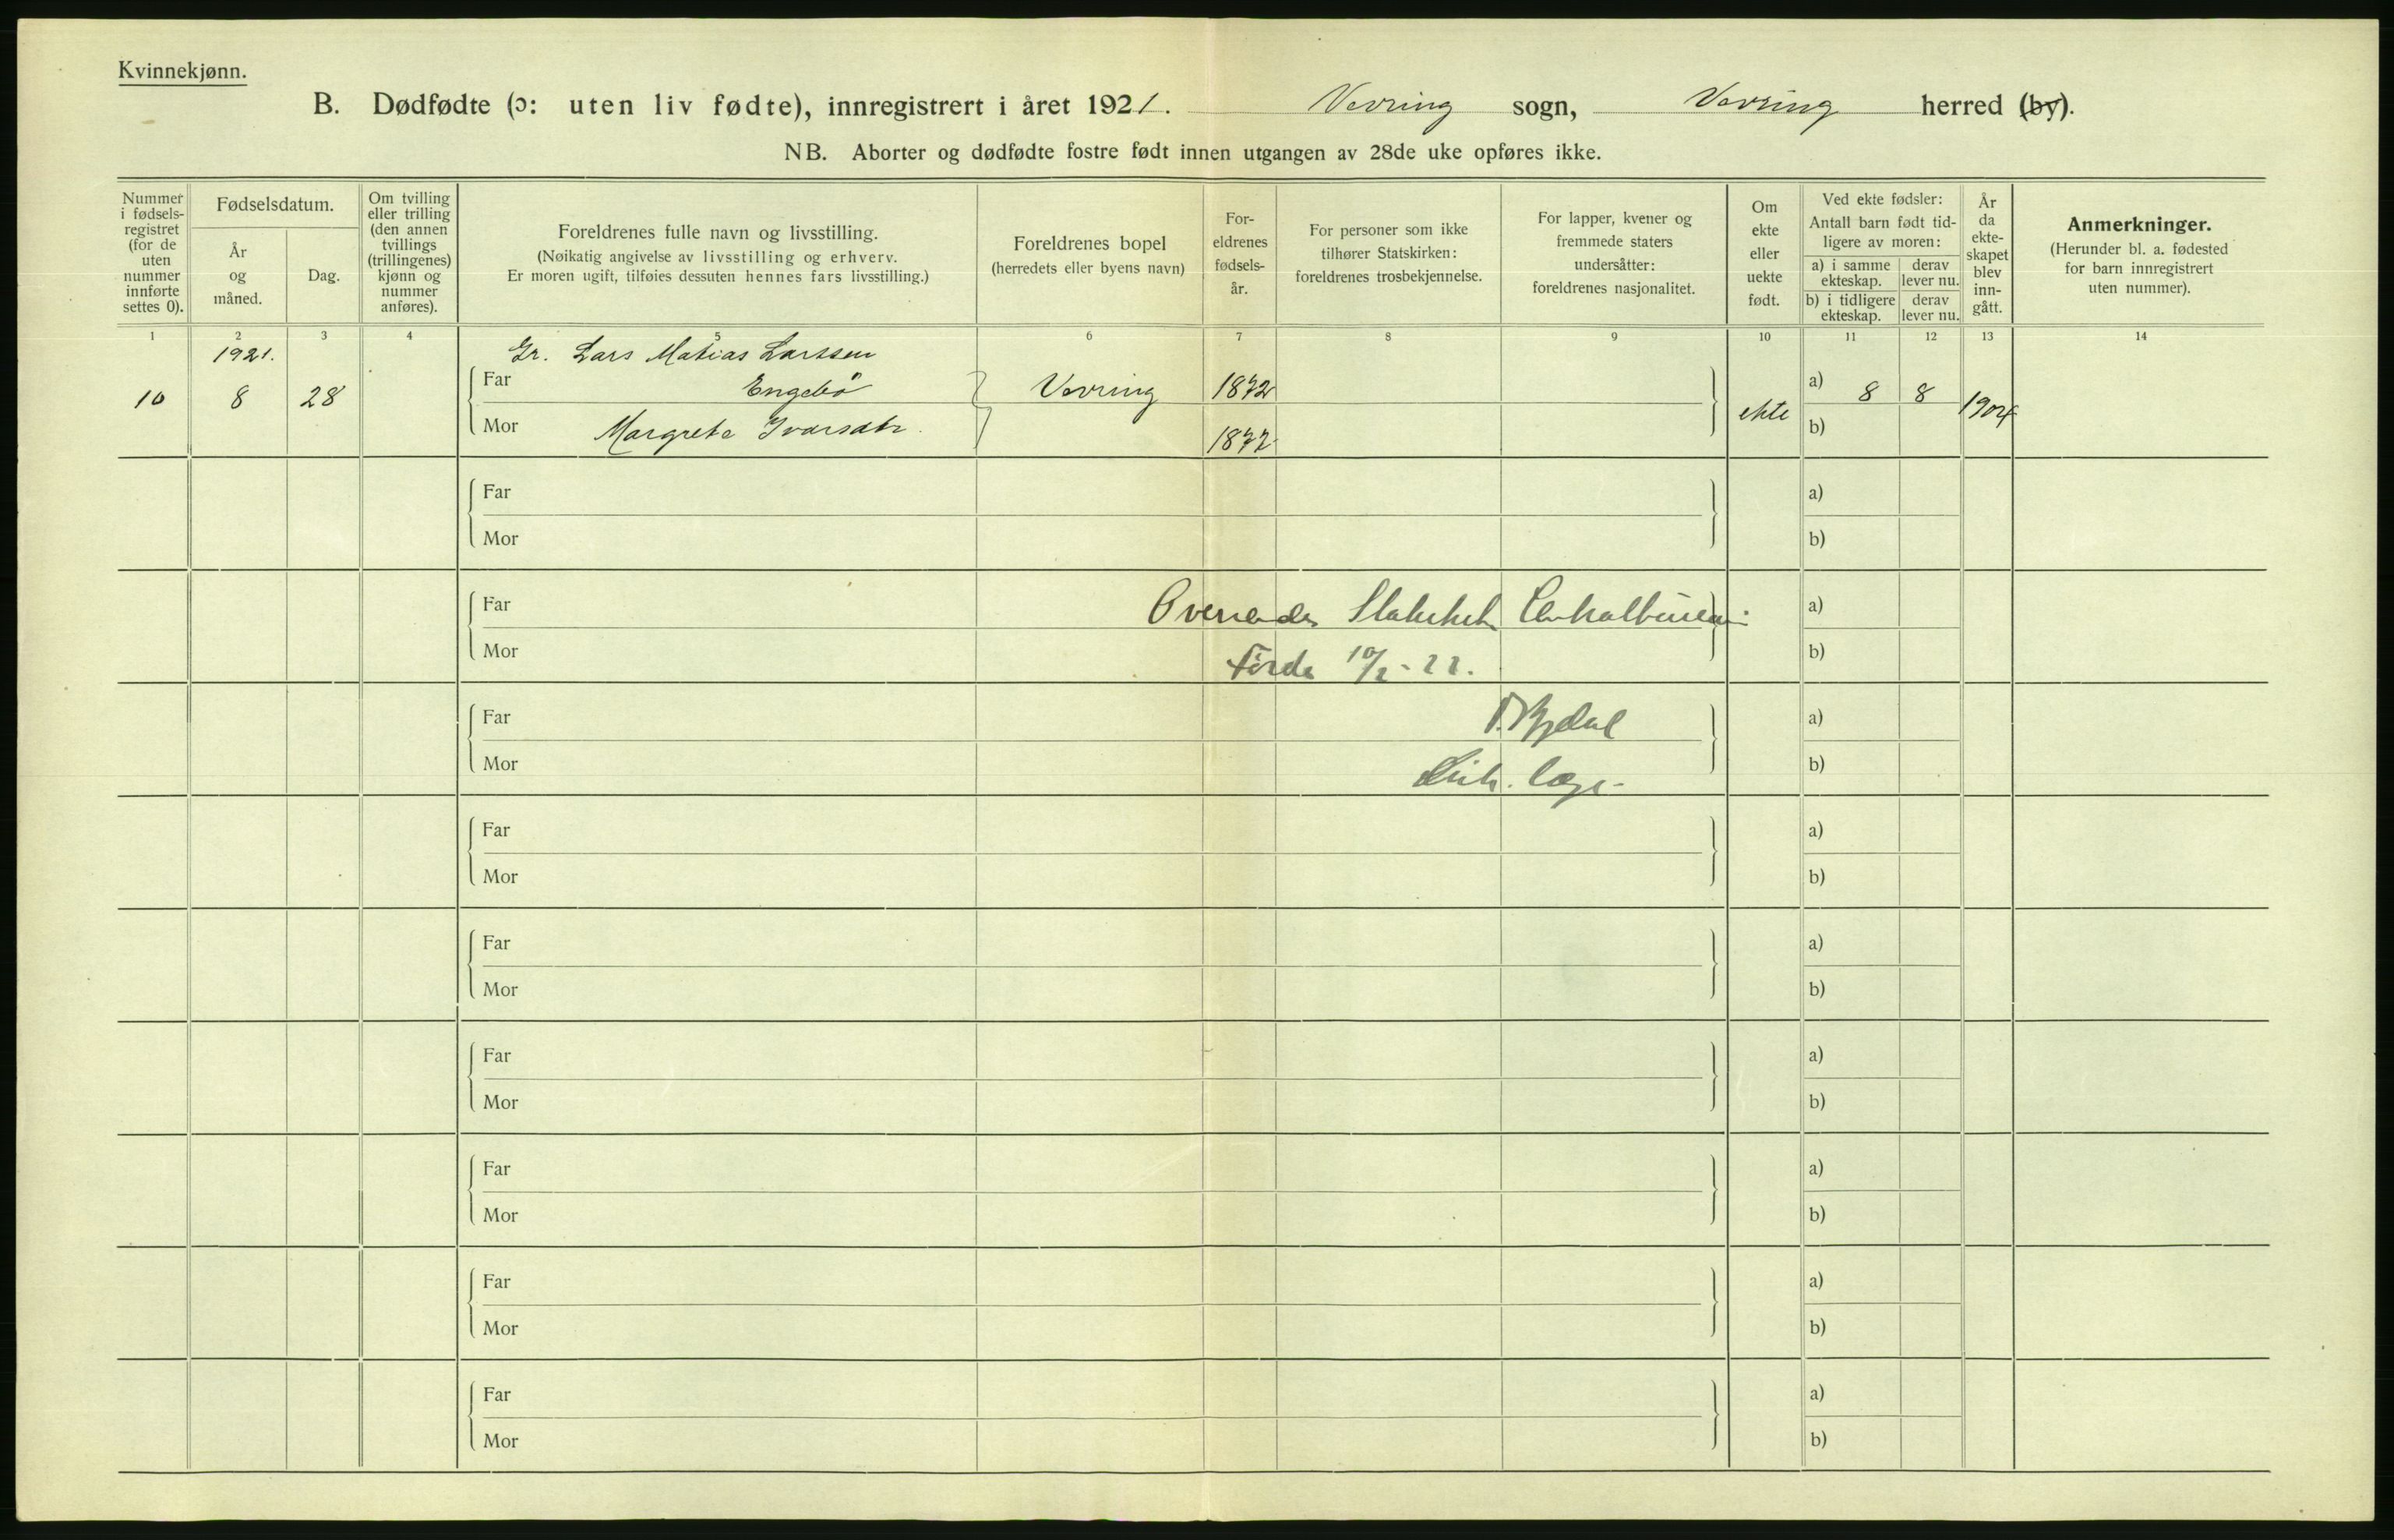 Kvinnekjønn.
B. Dødfødte (ɔ: uten liv fødte), innregistrert i året 1921. Vevring sogn, Vevring herred (by).
NB. Aborter og dødfødte fostre født innen utgangen av 28de uke opføres ikke.
Nummer i fødsels-registret (for de uten nummer innførte settes 0).
Fødselsdatum.
År og måned.
Dag.
Om tvilling eller trilling (den annen tvillings (trillingenes) kjønn og nummer anføres).
Foreldrenes fulle navn og livsstilling.
(Nøikatig angivelse av livsstilling og erhverv.
Er moren ugift, tilføies dessuten hennes fars livsstilling.)
Foreldrenes bopel
(herredets eller byens navn)
For-eldrenes fødsels-år.
For personer som ikke tilhører Statskirken: foreldrenes trosbekjennelse.
For lapper, kvener og fremmede staters undersåtter: foreldrenes nasjonalitet.
Om ekte eller uekte født.
Ved ekte fødsler:
Antall barn født tid-ligere av moren:
a) i samme ekteskap.
derav lever nu.
b) i tidligere ekteskap.
derav lever nu.
År da ekte-skapet blev inn-gått.
Anmerkninger.
(Herunder bl. a. fødested for barn innregistrert uten nummer).
1 2 3 4 5 6 7 8 9 10 11 12 13 14
1921. Gr. Lars Matias Larssen
10 8 28 Far Engebö Vevring 1872 ekte a) 8 8 1904
Mor Margrete Ivarsdtr. 1872 b)
Far a)
Mor b)
Far Oversendes a)
Mor Förde 10/2-22. b)
Far a)
Mor læge b)
Far a)
Mor b)
Far a)
Mor b)
Far a)
Mor b)
Far a)
Mor b)
Far a)
Mor b)
Far a)
Mor b)